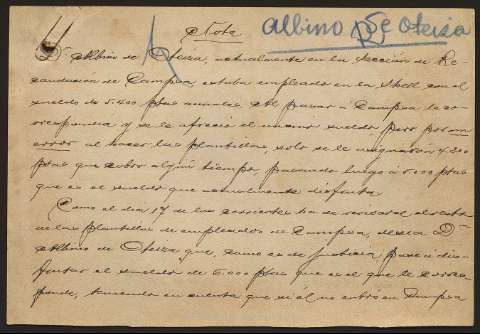 Nota
Albino de Oteiza
Dn Albino de Oteiza, actualmente en la Sección de Re-
caudación de Campsa, estaba empleado en la Shell con el
sueldo de 5.400 ptas anuales. Al pasar a Campsa le co-
rrespondía y se le ofreció el mismo sueldo pero por un
error al hacer las plantillas, solo se le asignaron 4.200
ptas que cobró algún tiempo, pasando luego a 5.000 ptas
que es el sueldo que actualmente disfruta.
Como el día 17 de los corrientes ha de
de las plantillas de empleados de Campsa, desea Dn
Albino de Oteiza que, como es de justicia pase a dis-
frutar el sueldo de 6.000 ptas que es el que le corres-
ponde, teniendo en cuenta que si él no entró en Campsa